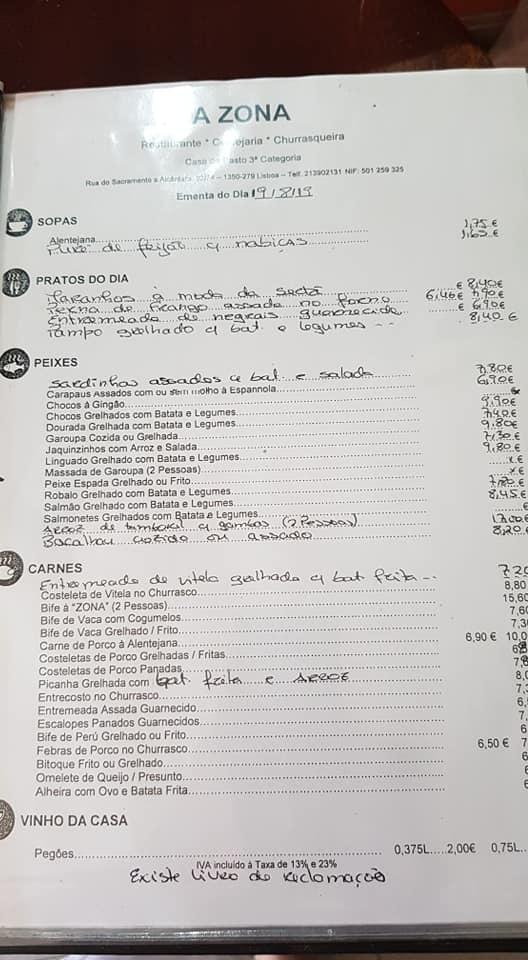 A ZONA
Restaurante * Cervejaria * Churrasqueira
Casa de Pasto 3ª Categoria
Rua do Sacramento a Alcântara, – 1350-279 Lisboa – Telf. 213902131 NIF: 501 259 325
Ementa do Dia 19/8/19
SOPAS
Alentejana 1,75 €
Puré de feijão c/ nabiças 1,65 €
PRATOS DO DIA
Jaquinzinhos à moda da € 8,40 €
Perna de frango assada no forno 6,40 € 7,90 €
Entremeada de negrais guarnecida € 6,90 €
Tampo grelhado c/ bat. e legumes 8,40 €
PEIXES
Sardinhas assadas c/ bat. e salada 7,80 €
Carapaus Assados com ou sem molho à Espannola 6,90 €
Chocos à Gingão
Chocos Grelhados com Batata e Legumes
Dourada Grelhada com Batata e Legumes
Garoupa Cozida ou Grelhada
Jaquinzinhos com Arroz e Salada
Linguado Grelhado com Batata e Legumes
Massada de Garoupa (2 Pessoas)
Peixe Espada Grelhado ou Frito
Robalo Grelhado com Batata e Legumes
Salmão Grelhado com Batata e Legumes
Salmonetes Grelhados com Batata e Legumes
Arroz de tamboril c/ gambas (2 Pessoas)
Bacalhau cozido ou assado 8,20 €
CARNES
Entremeada de vitela grelhada c/ bat frita
Costeleta de Vitela no Churrasco 8,80
Bife à "ZONA" (2 Pessoas) 15,60
Bife de Vaca com Cogumelos 7,60
Bife de Vaca Grelhado / Frito
Carne de Porco à Alentejana 6,90 € 10,0
Costeletas de Porco Grelhadas / Fritas
Costeletas de Porco Panadas
Picanha Grelhada com bat. frita e Arroz
Entrecosto no Churrasco
Entremeada Assada Guarnecido
Escalopes Panados Guarnecidos
Bife de Perú Grelhado ou Frito
Febras de Porco no Churrasco 6,50 € 7
Bitoque Frito ou Grelhado
Omelete de Queijo / Presunto
Alheira com Ovo e Batata Frita
VINHO DA CASA
Pegões 0,375L.....2,00€ 0,75L
IVA incluído à Taxa de 13% e 23%
Existe livro de reclamação